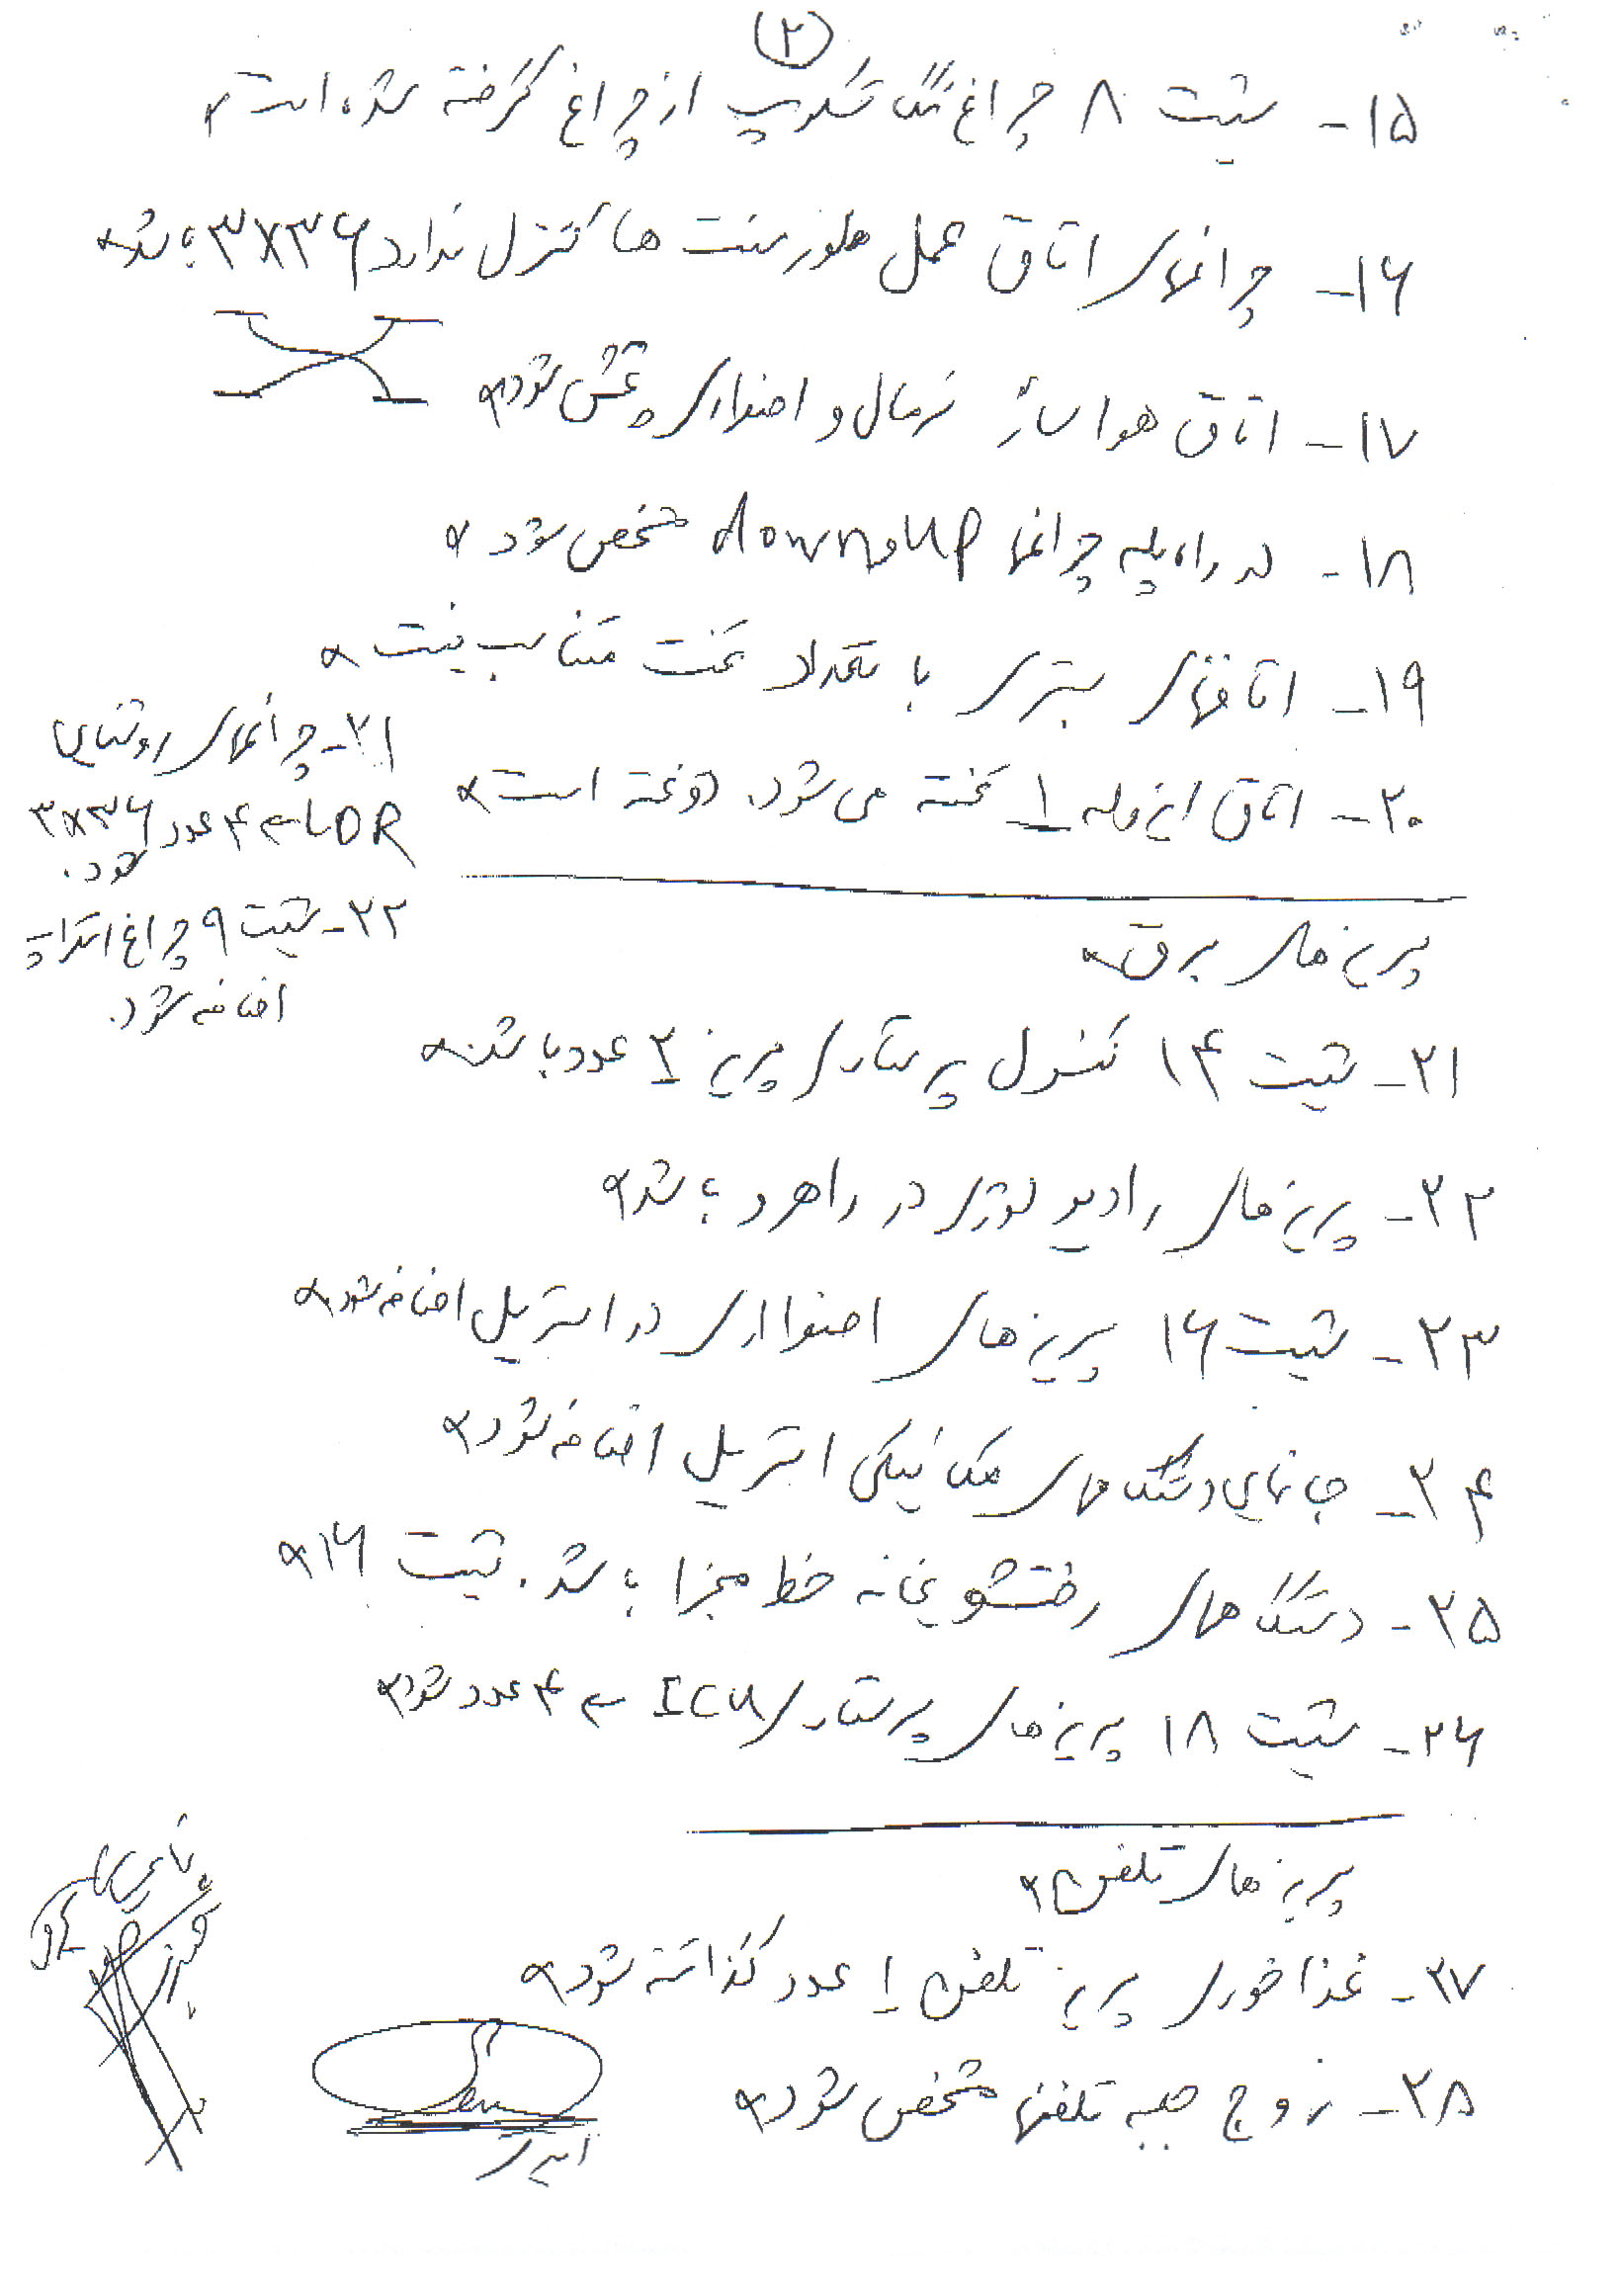 (۲)
۱۵- شیت ۸ چراغ نگاتسکوپ از چراغ گرفته شده است
۱۶- چراغهای اتاق عمل فلورسنت ها کنترل ندارد ۳×۳۶ باشد
۱۷- اتاق هواساز نرمال و اضطراری پخش شود
۱۸- در راه پله چراغها up و down مشخص شود
۱۹- اتاقهای بستری با تعداد تخت متناسب نیست
۲۰- اتاق ایزوله ۱ تخته می شود. دو تخته است
۲۱- چراغهای روشنایی
LDR سه ۴ عدد ۳×۳۶
شود.
۲۲- شیت ۹ چراغ استراحت
اضافه شود.
پریزهای برق
۲۱- شیت ۱۴ کنسول پرستاری پریز ۲ عدد باشد
۲۲- پریزهای رادیولوژی در راهرو باشد
۲۳- شیت ۱۶ پریزهای اضطراری در استریل اضافه شود
۲۴- جانمایی دستگاههای مکانیکی استریل اضافه شود
۲۵- دستگاههای رختشویخانه خط مجزا باشد. شیت ۱۶
۲۶- شیت ۱۸ پریزهای پرستاری ICU سه ۴ عدد شود
پریزهای تلفن
۲۷- غذاخوری پریز تلفن ۱ عدد گذاشته شود
۲۸- زوج جعبه تلفنها مشخص شود